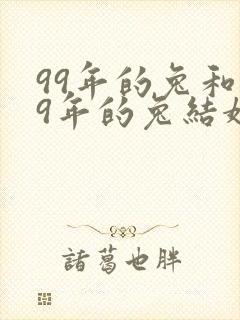 99年的兔和
9年的兔結
諸葛也胖